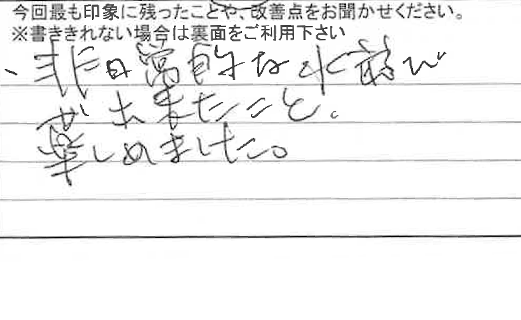 今回最も印象に残ったことや、改善点をお聞かせください。
※書ききれない場合は裏面をご利用下さい
、非日常的な水遊び
が出来たこと。
楽しめました。